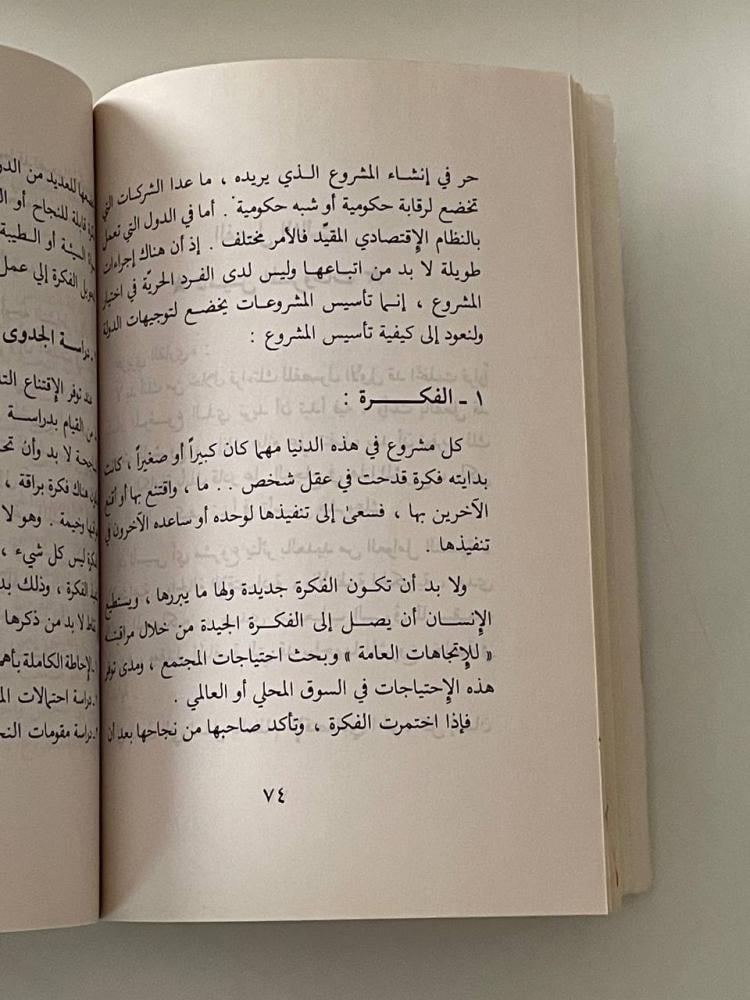 حر في إنشاء المشروع الـذي يريده ، ما عدا الشركات التي
تخضع لرقابة حكومية أو شبه حكومية . أما في الدول التي تعمل
بالنظام الإقتصادي المقيّد فالأمر مختلف . إذ أن هناك إجراءات
طويلة لا بد من اتباعها وليس لدى الفرد الحريّة في اختيار
المشروع ، إنـما تأسيس المشروعـات يخضع لتوجيهات الدولة
ولنعود إلى كيفية تأسيس المشروع :
١ ـ الفكــــرة :
كل مشروع في هذه الدنيا مهما كان كبيراً أو صغيراً ، كانت
بدايته فكرة قدحت في عقل شخص . . ما ، واقتنع بها أو أقنع
الآخرين بها ، فسعىٰ إلى تنفيذها لوحده أو ساعده الآخرون في
تنفيذها .
ولا بد أن تكـون الفكرة جديدة ولها ما يبررها ، ويستطيع
الإنســان أن يصــل إلى الفكــرة الجيدة من خلال مراقبته
« للإتجاهات العامة » وبحث احتياجات المجتمع ، ومدى توفر
هذه الإحتياجات في السوق المحلي أو العالمي .
فإذا اختمرت الفكرة ، وتأكد صاحبها من نجاحها بعد أن
٧٤
للعديد من الدو
قابلة للنجاح أو
السيئة أو الطيبة
الفكرة إلي عمل
دراسـة الجدوى
توفر الإقتناع
من القيام بدراسـة
لا بد وأن
هناك فكرة براقة ،
وخيمة . وهو لا
ليس كل شيء ،
الفكرة ، وذلك
لا بد من ذكرها
الإحاطة الكاملة
دراسة احتمالات
دراسة مقومات